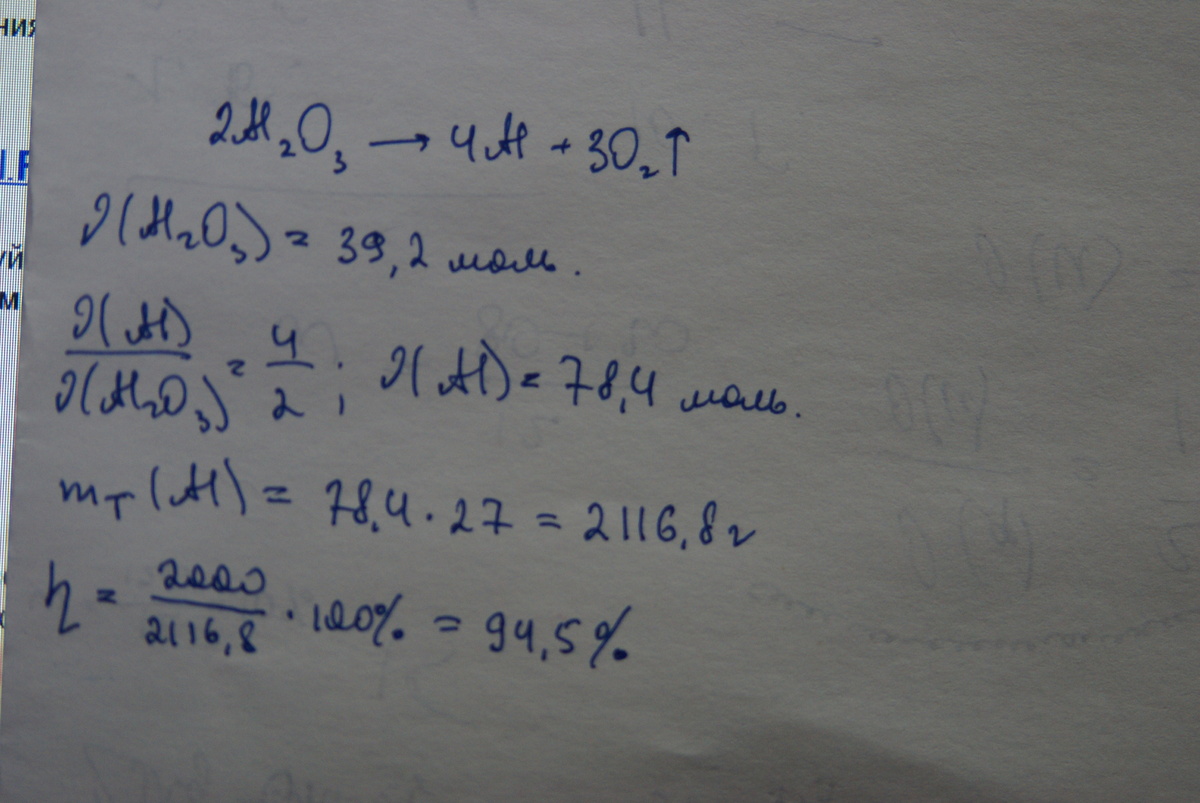 2Al₂O₃ → 4Al + 3O₂↑
ν(Al₂O₃) = 39,2 моль.
ν(Al)/ν(Al₂O₃) = 4/2; ν(Al) = 78,4 моль.
mт(Al) = 78,4 · 27 = 2116,8 г
η = 2000/2116,8 · 100% = 94,5%.